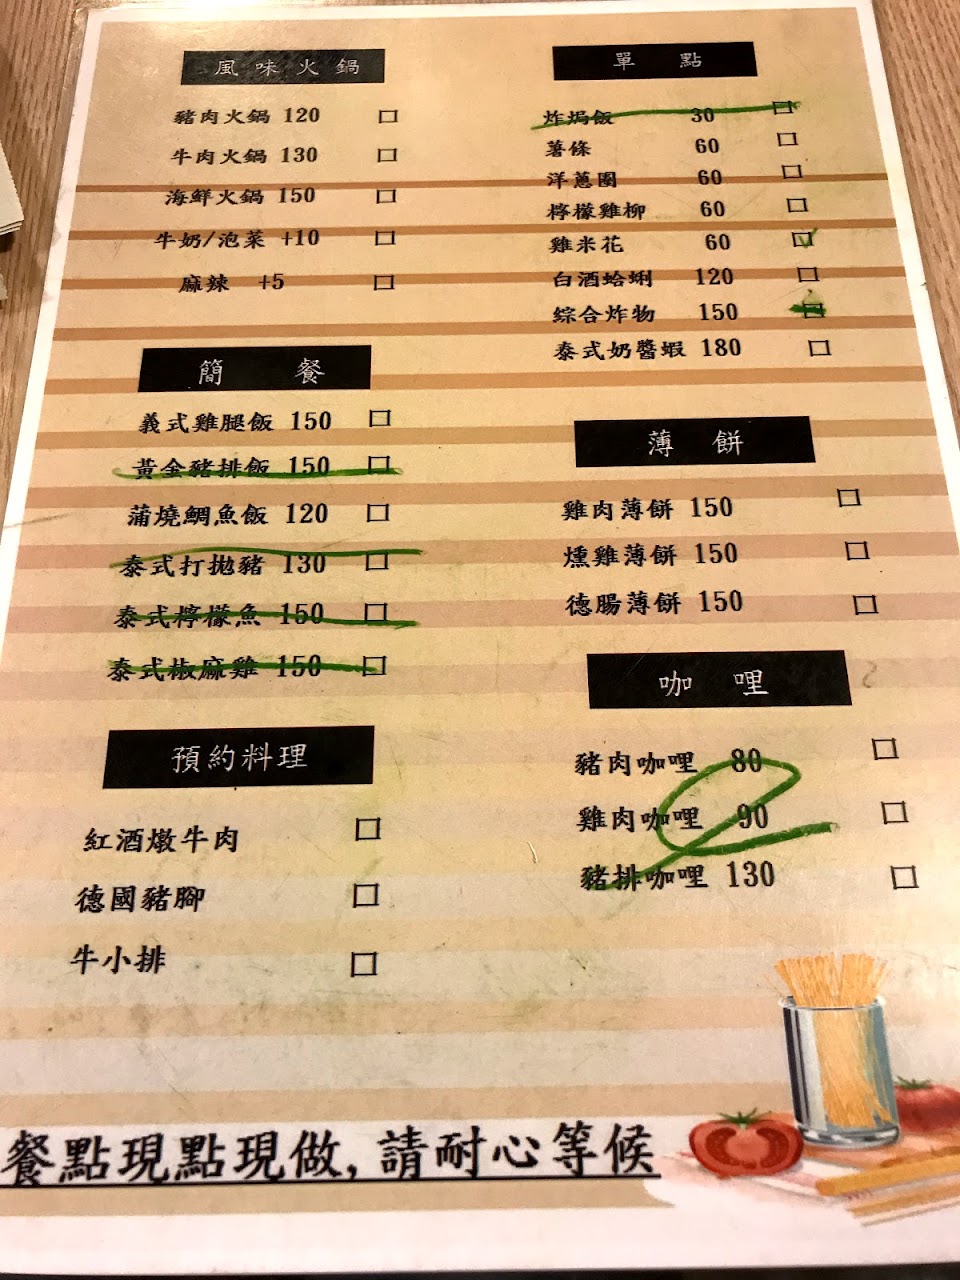 風味火鍋
豬肉火鍋 120 □
牛肉火鍋 130 □
海鮮火鍋 150 □
牛奶/泡菜 +10 □
麻辣 +5 □
簡 餐
義式雞腿飯 150 □
黃金豬排飯 150 □
蒲燒鯛魚飯 120 □
泰式打拋豬 130 □
泰式檸檬魚 150 □
泰式椒麻雞 150 □
預約料理
紅酒燉牛肉 □
德國豬腳 □
牛小排 □
單 點
炸焗飯 30 □
薯條 60 □
洋蔥圈 60 □
檸檬雞柳 60 □
雞米花 60 □
白酒蛤蜊 120 □
綜合炸物 150 □
泰式奶醬蝦 180 □
薄 餅
雞肉薄餅 150 □
燻雞薄餅 150 □
德腸薄餅 150 □
咖 哩
豬肉咖哩 80 □
雞肉咖哩 90 □
豬排咖哩 130 □
餐點現點現做,請耐心等候